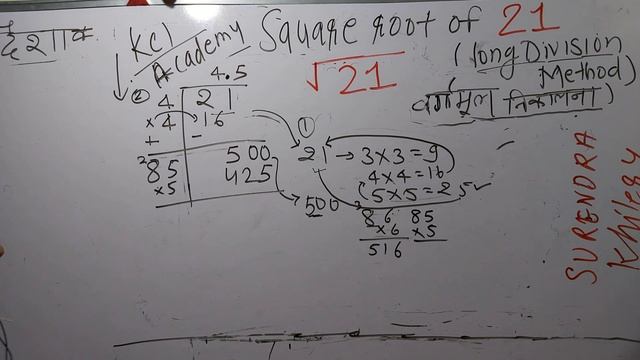 देशाक
KCl Academy
Square root of 21
√21
(long Division Method)
(वर्गमूल निकालना)
4.5
② 4 21
×4 16
+ −
85 500
×5 425
①
21 → 3×3=9
4×4=16
5×5=25✓
500
86 85
×6 ×5
516
SURENDRA
Khilery